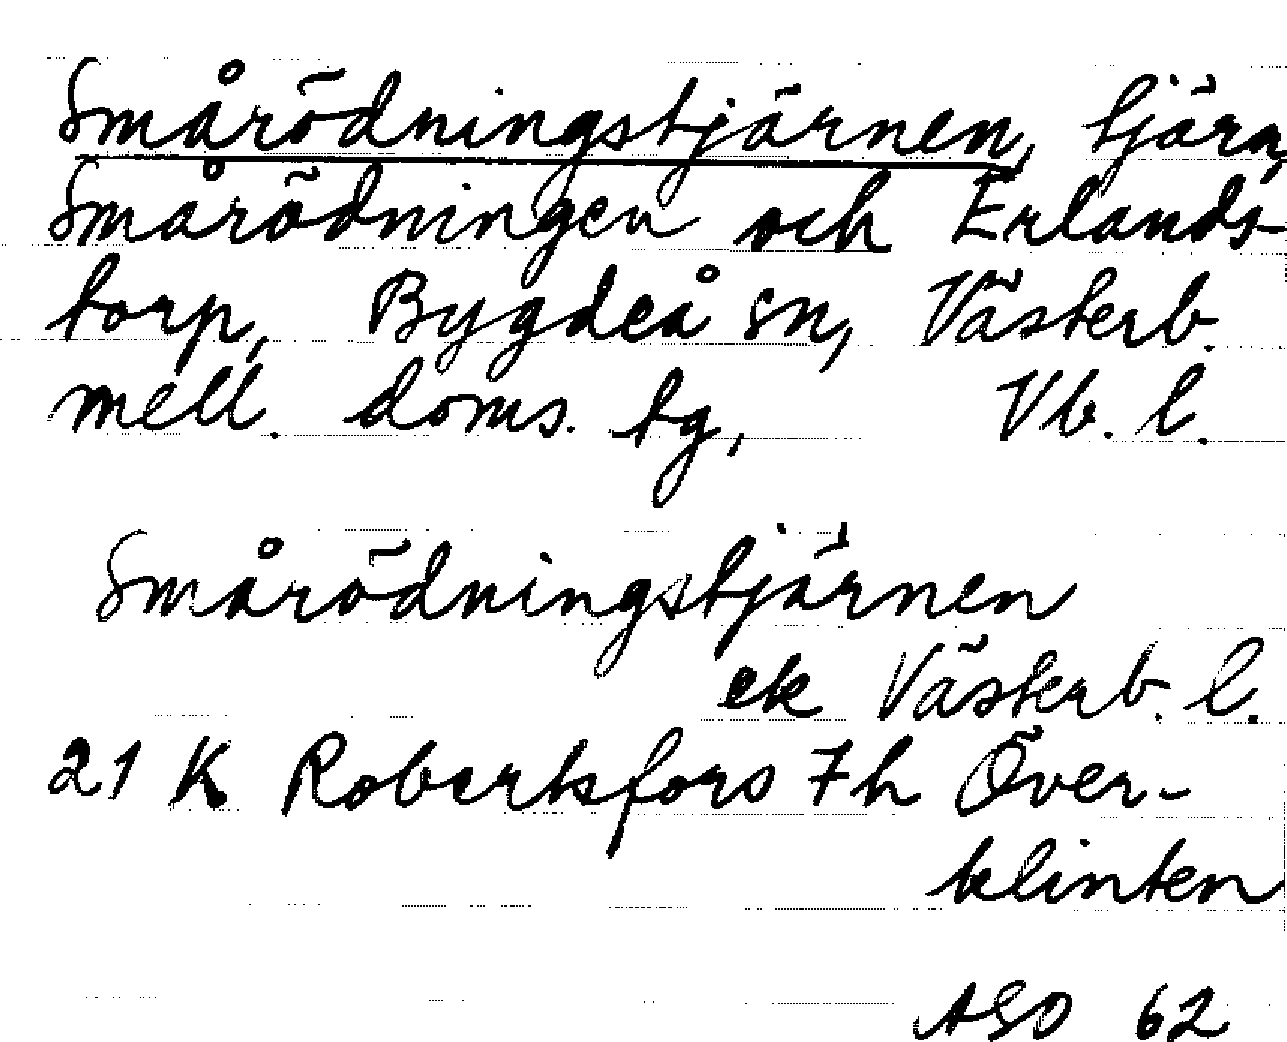 Smårödningstjärnen, tjärn,
Smårödningen och Erlands-
torp, Bygdeå sn, Västerb.
mell. doms. tg, Vb. l.
Smårödningstjärnen
ek Västerb. l.
21 K Robertsfors 7h Över-
klinten
ASO 62